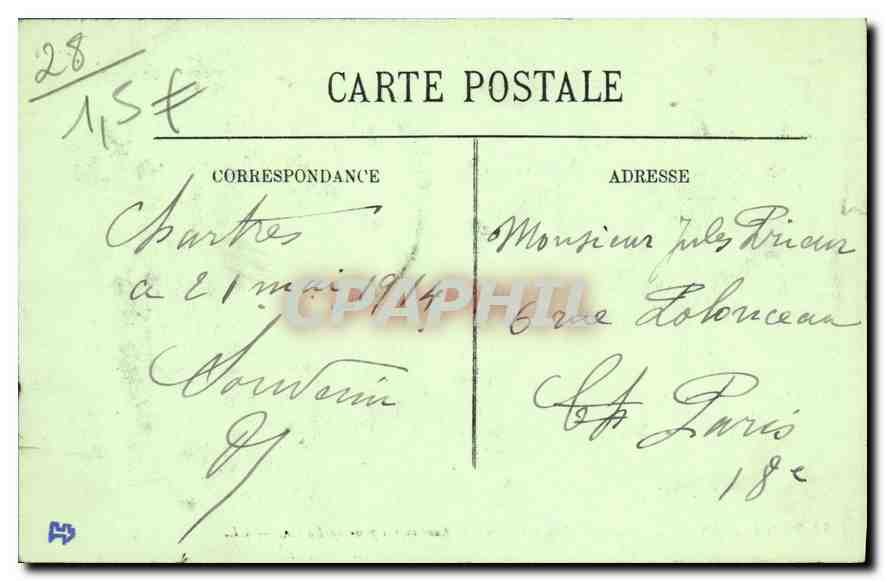 28
1,5€
CARTE POSTALE
CORRESPONDANCE
Chartres
a 21 mai 1914
Souvenir
ADRESSE
Monsieur Jules Prieur
6 rue Polonceau
Paris
18e
CPAPHIL